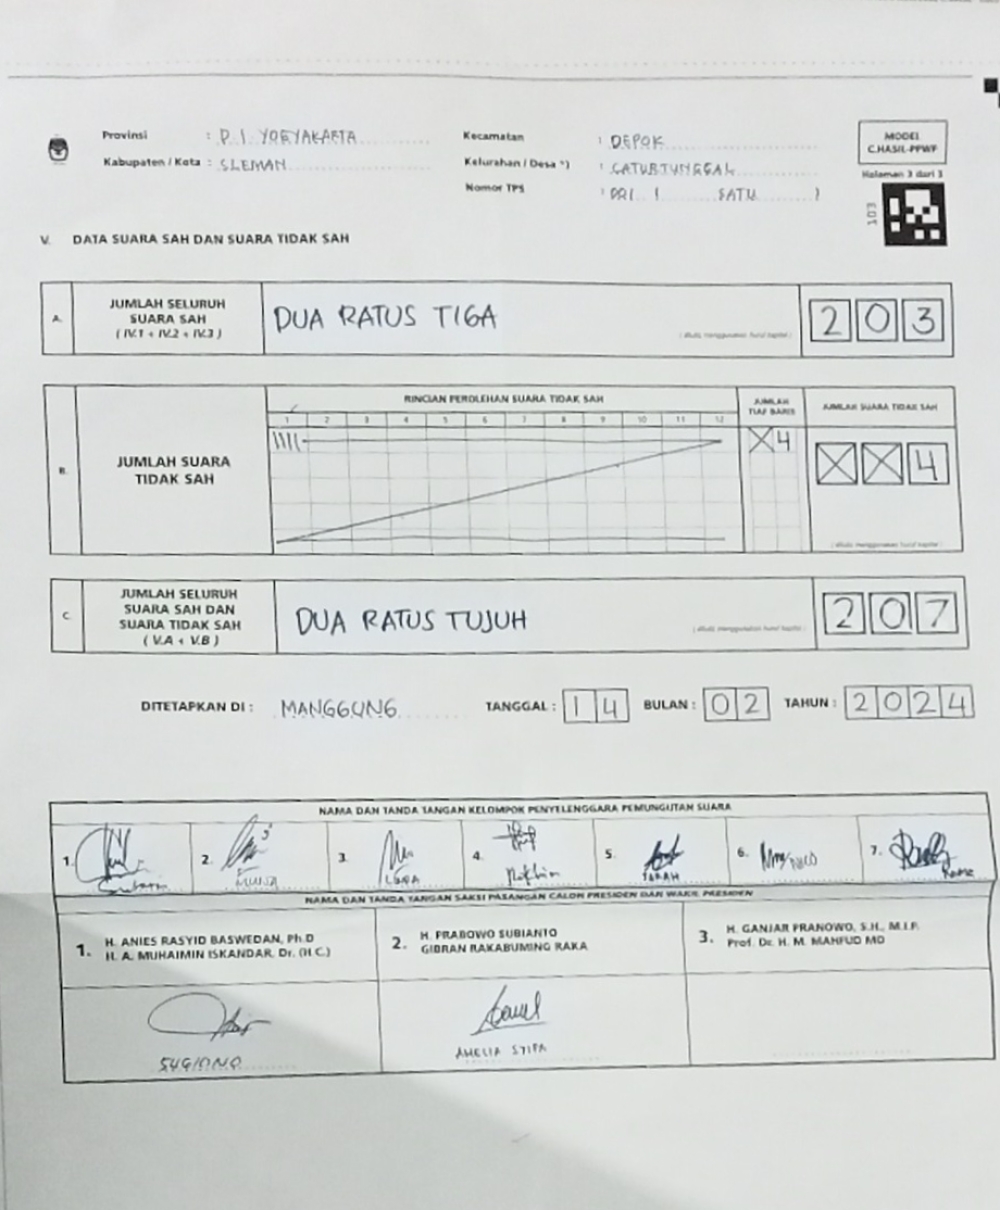 Provinsi : D.I. YOGYAKARTA
Kabupaten / Kota : SLEMAN
Kecamatan : DEPOK
Kelurahan / Desa *) : CATURTUNGGAL
Nomor TPS : 001 ( SATU )
MODEL
C.HASIL-PPWP
Halaman 3 dari 3
103
V. DATA SUARA SAH DAN SUARA TIDAK SAH
A. JUMLAH SELURUH
SUARA SAH
( IV.1 + IV.2 + IV.3 )
DUA RATUS TIGA
( ditulis menggunakan huruf kapital )
2 0 3
B. JUMLAH SUARA
TIDAK SAH
RINCIAN PEROLEHAN SUARA TIDAK SAH
1 2 3 4 5 6 7 8 9 10 11 12
JUMLAH
TIAP BARIS
JUMLAH SUARA TIDAK SAH
X 4
X X 4
( ditulis menggunakan huruf kapital )
C. JUMLAH SELURUH
SUARA SAH DAN
SUARA TIDAK SAH
( V.A + V.B )
DUA RATUS TUJUH
( ditulis menggunakan huruf kapital )
2 0 7
DITETAPKAN DI : MANGGUNG TANGGAL : 1 4 BULAN : 0 2 TAHUN : 2 0 2 4
NAMA DAN TANDA TANGAN KELOMPOK PENYELENGGARA PEMUNGUTAN SUARA
1. 2. 3. 4. 5. 6. 7.
NAMA DAN TANDA TANGAN SAKSI PASANGAN CALON PRESIDEN DAN WAKIL PRESIDEN
1. H. ANIES RASYID BASWEDAN, Ph.D
H. A. MUHAIMIN ISKANDAR, Dr. (H.C.)
2. H. PRABOWO SUBIANTO
GIBRAN RAKABUMING RAKA
3. H. GANJAR PRANOWO, S.H., M.I.P.
Prof. Dr. H. M. MAHFUD MD
SUGIONO
AMELIA